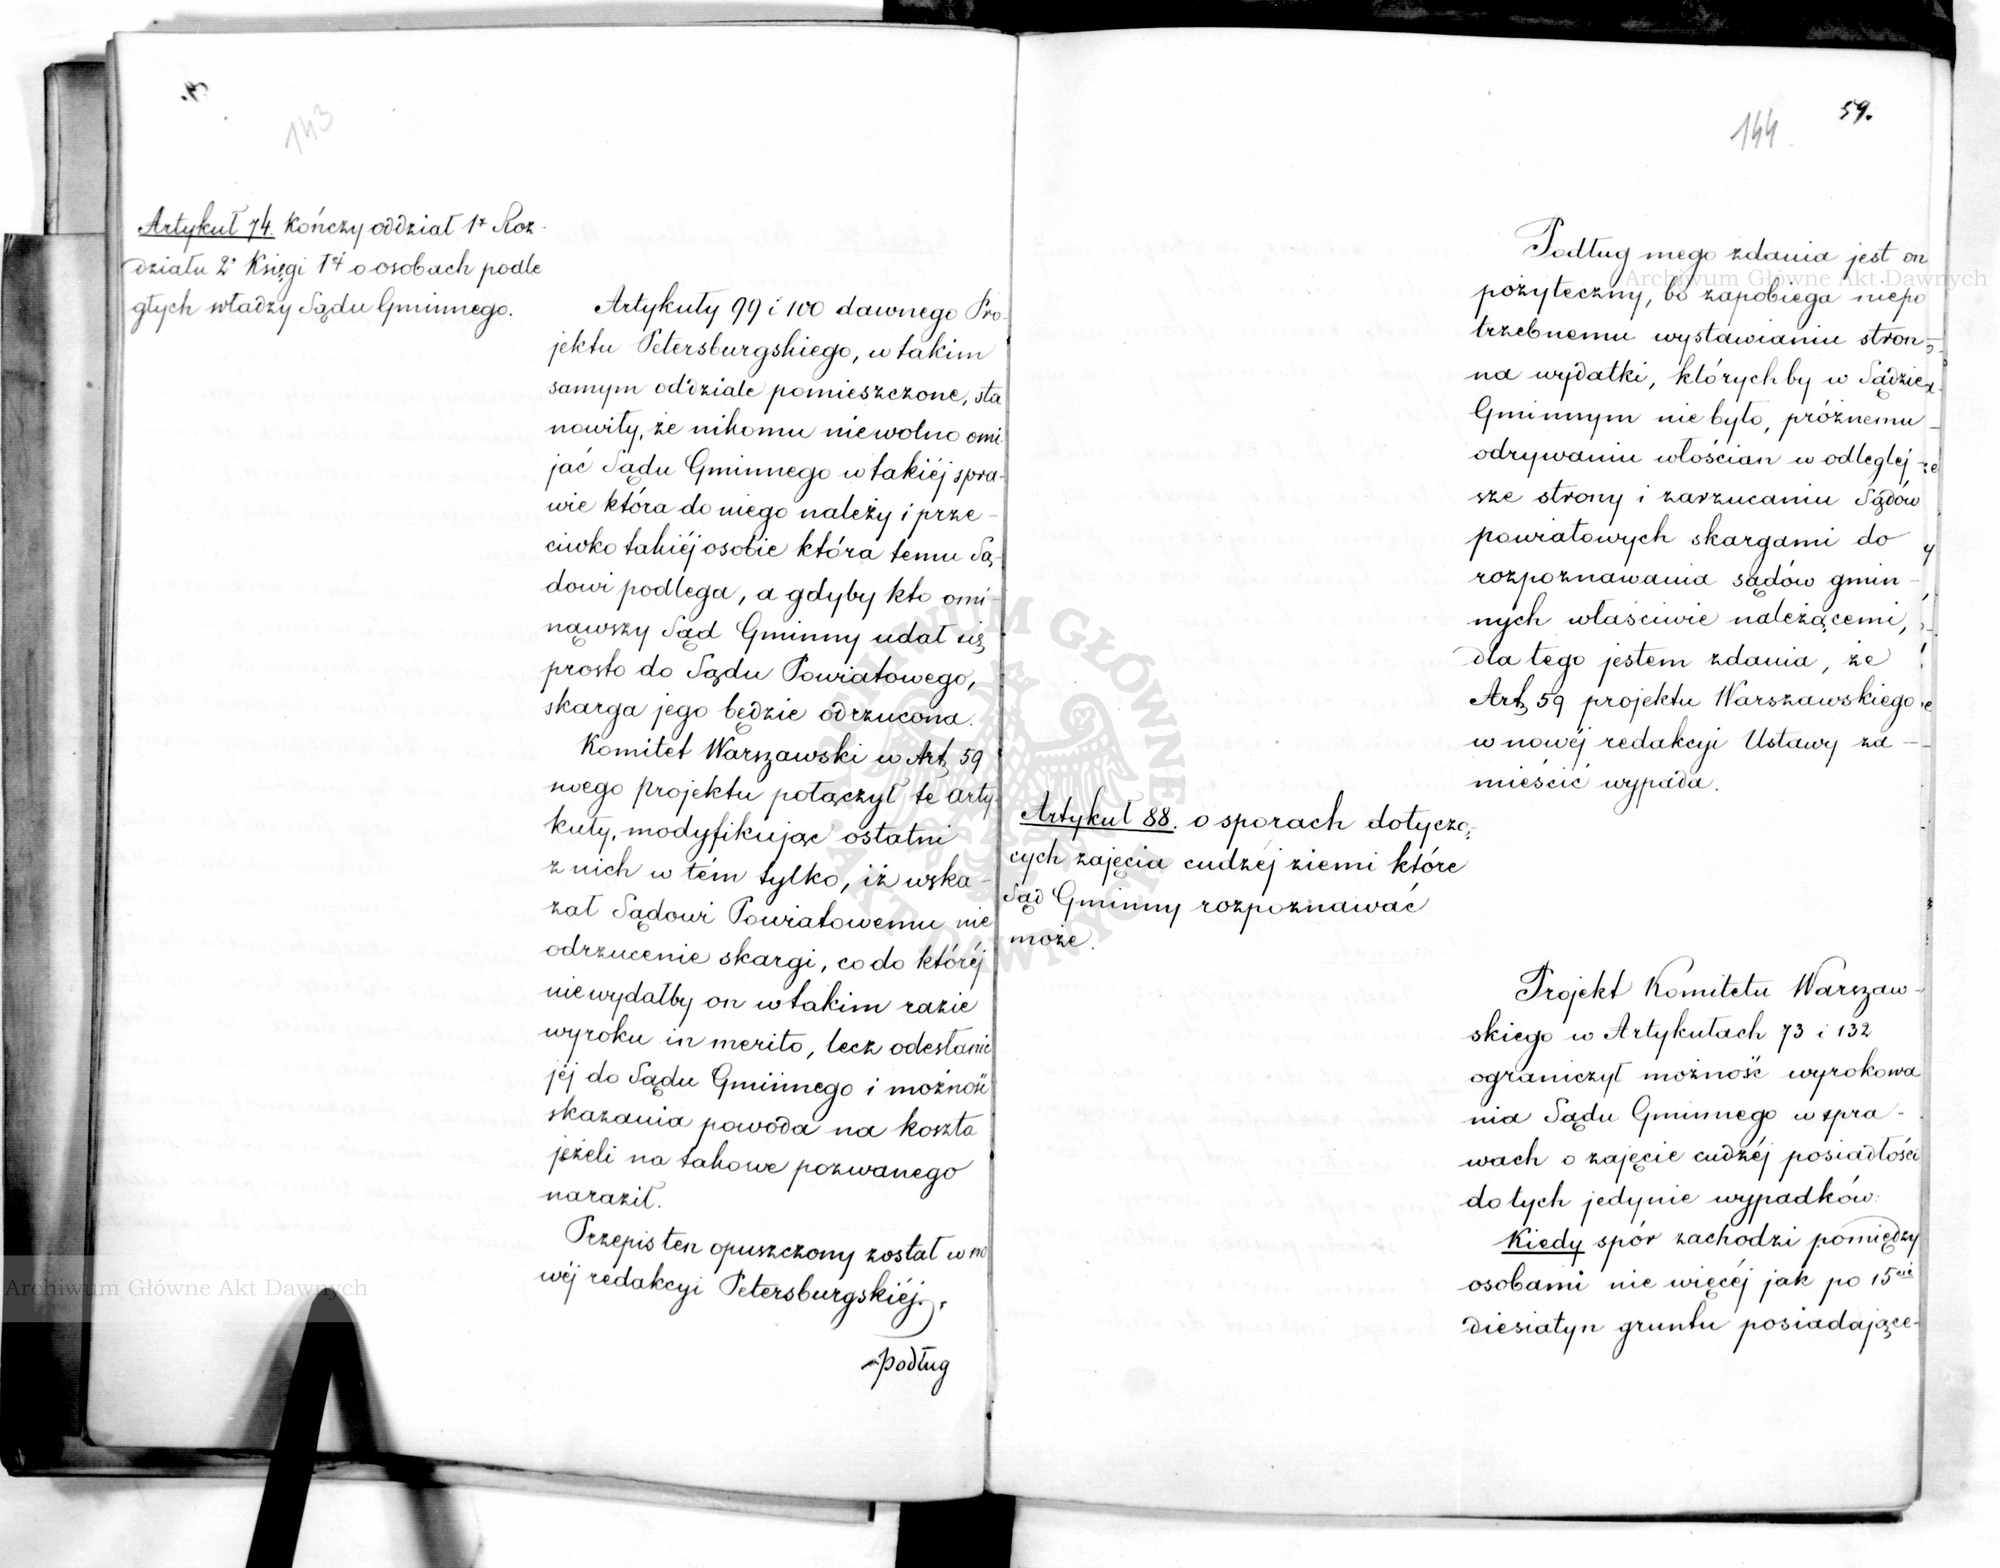 143
Artykuł 74. Kończy oddział 1y Roz-
działu 2o Księgi 1ej o osobach podle
głych władzy Sądu Gminnego.
Artykuły 99 i 100 dawnego Pro-
jektu Petersburgskiego, w takim
samym oddziale pomieszczone, sta
nowiły, że nikomu nie wolno omi
jać Sądu Gminnego w takiéj spra-
wie która do niego należy i prze-
ciwko takiéj osobie która temu Są-
dowi podlega, a gdyby kto omi-
nąwszy Sąd Gminny udał się
prosto do Sądu Powiatowego,
skarga jego będzie odrzucona.
Komitet Warszawski w Art. 59
swego projektu połączył te arty-
kuły, modyfikując ostatni
z nich w tém tylko, iż wska-
zał Sądowi Powiatowemu nie
odrzucenie skargi, co do któréj
nie wydałby on w takim razie
wyroku in merito, lecz odesłanie
jéj do Sądu Gminnego i możność
skazania powoda na koszta
jeżeli na takowe pozwanego
naraził.
Przepis ten opuszczony został w no
wéj redakcyi Petersburgskiéj.
Podług
59.
144
Podług mego zdania jest on
pożyteczny, bo zapobiega niepo
trzebnemu wystawianiu stron
na wydatki, których by w Sądzie
Gminnym nie było, próżnemu
odrywaniu włościan w odleglej-
sze strony i zarzucaniu Sądów
powiatowych skargami do
rozpoznawania sądów gmin-
nych właściwie należącemi,
dla tego jestem zdania, że
Art. 59 projektu Warszawskiego
w nowéj redakcyi Ustawy za-
mieścić wypada.
Artykuł 88. o sporach dotyczą-
cych zajęcia cudzéj ziemi które
Sąd Gminny rozpoznawać
może.
Projekt Komitetu Warszaw-
skiego w Artykułach 73 i 132
ograniczył możność wyrokowa
nia Sądu Gminnego w spra-
wach o zajęcie cudzéj posiadłości
do tych jedynie wypadków:
Kiedy spór zachodzi pomiędzy
osobami nie więcéj jak po 15cie
diesiatyn gruntu posiadające-
Archiwum Główne Akt Dawnych
Archiwum Główne Akt Dawnych
ARCHIWUM GŁÓWNE
AKT DAWNYCH